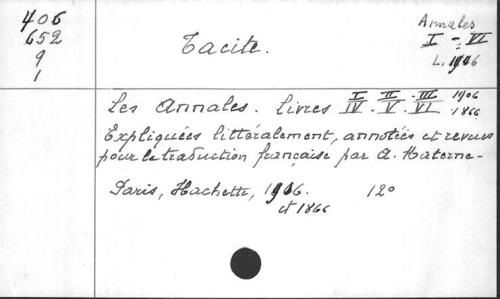 406
652
9
1
Tacite.
Annales
I - VI
L. 1906
Les Annales. Livres I . II . III 1906
IV . V . VI 1866
Expliquées littéralement, annotées et revues
pour la traduction française par A. Materne -
Paris, Hachette, 1906. 12°
et 1866